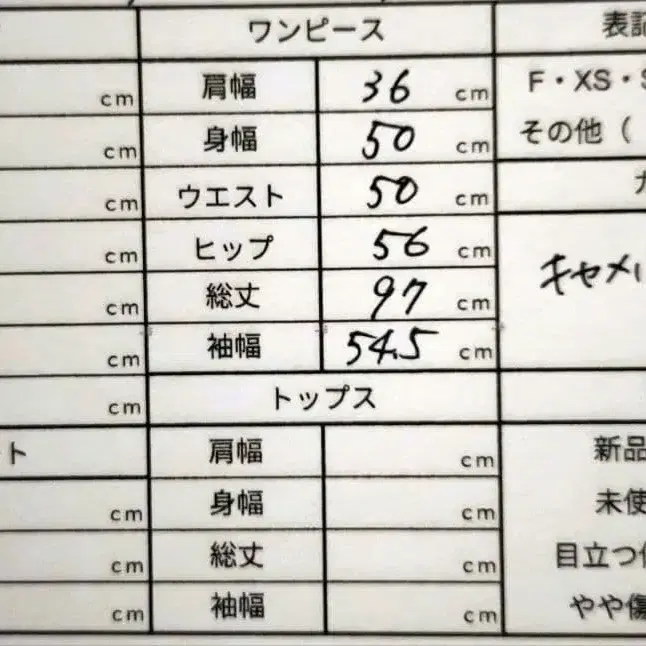 ワンピース 表記
cm 肩幅 36 cm F・XS・S
cm 身幅 50 cm その他（
cm ウエスト 50 cm カ
cm ヒップ 56 cm
キャメル
cm 総丈 97 cm
cm 袖幅 54.5 cm
cm トップス
ト 肩幅 cm 新品
cm 身幅 cm 未使
cm 総丈 cm 目立つ
cm 袖幅 cm やや傷